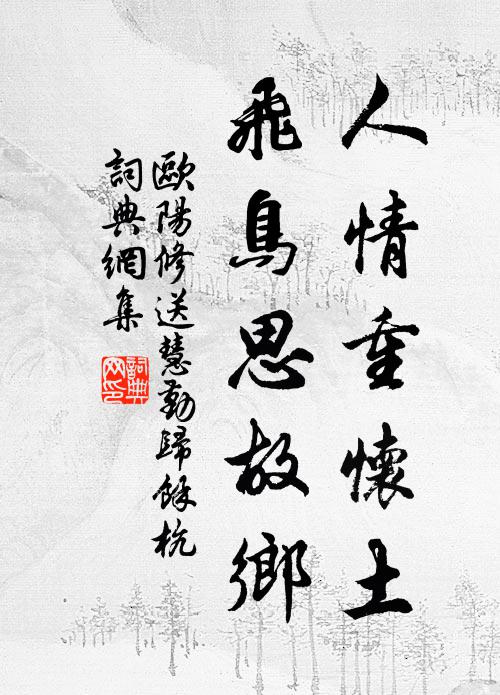 人情重懷土
飛鳥思故鄉
歐陽修送慧勤歸餘杭
詞典網集
詞典网印